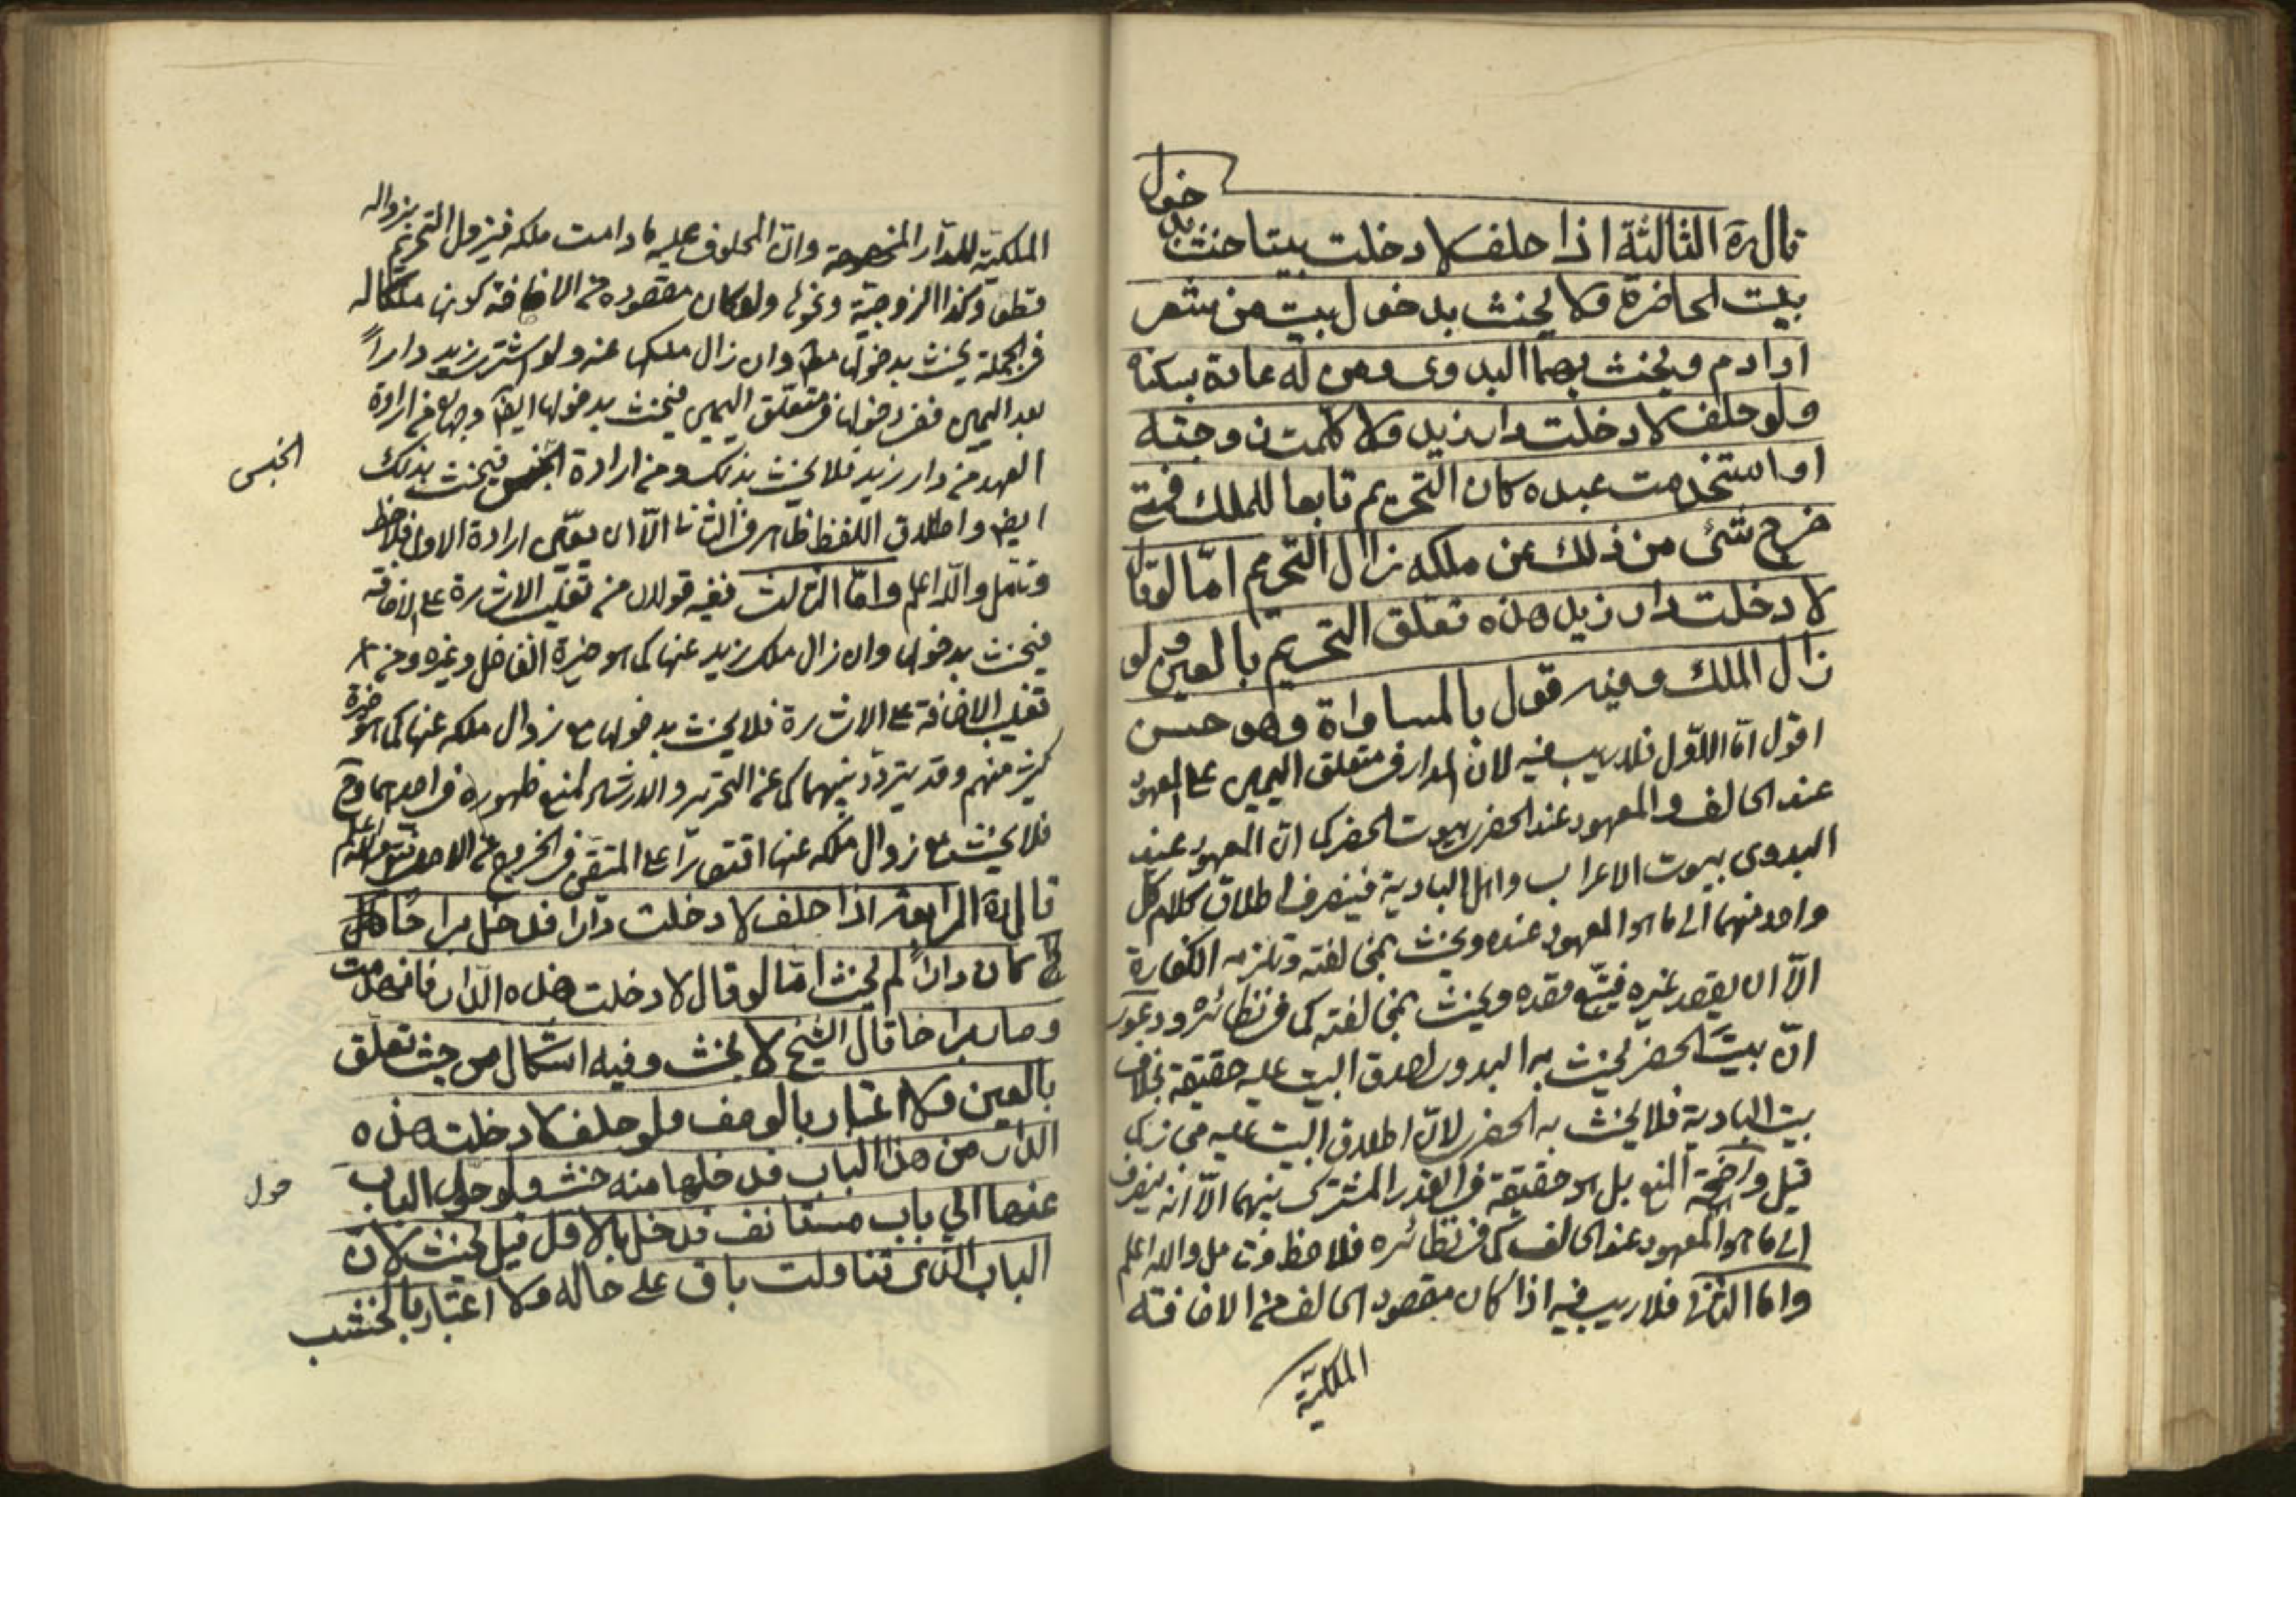 قال ره الثالثة اذا حلف لا دخلت بيتا حنث بدخول
بيت الحاضرة ولا يحنث بدخول بيت من شعر
او ادم ويحنث بهما البدوى ومن له عادة بسكناه
ولو حلف لا دخلت دار زيد ولا كلمت زوجته
او استخدمت عبده كان التحريم تابعا للملك فمتى
خرج شئ من ذلك عن ملكه زال التحريم امّا لو قال
لا دخلت دار زيد هذه تعلق التحريم بالعين ولو
زال الملك وفيه قول بالمساواة وهو حسن
اقول امّا الاوّل فلا ريب فيه لانّ المدار فى متعلق اليمين على المعهود
عند الحالف والمعهود عند الحضرى بيوت الحضر كما انّ المعهود عند
البدوى بيوت الاعراب واهل البادية فينصرف اطلاق كلام كل
واحد منهما الى ما هو المعهود عنده ويحنث بمخالفته وتلزمه الكفارة
الّا ان يقصد غيره فيتبع قصده ويحنث بمخالفته كما فى نظائره ودعوى
انّ بيت الحضر يحنث به البدوى لصدق البيت عليه حقيقة بخلاف
بيت البادية فلا يحنث به الحضرى لانّ اطلاق البيت عليه مجاز كما
قيل واضحة المنع بل هو حقيقة فى القدر المشترك بينهما الّا انه ينصرف
الى ما هو المعهود عند الحالف كما فى نظائره فلاحظ وتامل والله اعلم
وامّا الثانى فلا ريب فيه اذا كان مقصود الحالف من الاضافة
الملكيّة
الملكيّة للدّار المخصوصة وانّ المحلوف عليه ما دامت ملكه فيزول التحريم بزواله
قطعا وكذا الزوجيّة ونحوها ولو كان مقصوده من الاضافة كونها ملكا له
فى الجملة يحنث بدخولها مط وان زال ملكها عنه ولو اشترى زيد داراً
بعد اليمين ففى دخولها فى متعلق اليمين فيحنث بدخولها ايضا وجهان من ارادة
العهد من دار زيد فلا يحنث بذلك ومن ارادة الجنس فيحنث بذلك
الجنس
ايضا واطلاق اللفظ ظاهر فى الثانى الّا ان يقتضى ارادة الاول فلاحظ
وتامل والله اعلم وامّا الثالث ففيه قولان من تغليب الاشارة على الاضافة
فيحنث بدخولها وان زال ملك زيد عنها كما هو خيرة الفاضل وغيره ومن
تغليب الاضافة على الاشارة فلا يحنث بدخولها مع زوال ملكه عنها كما هو خيرة
كثير منهم وقد يتردّد بينهما كما عن التحرير والارشاد لمنع ظهوره فى احدهما وح
فلا يحنث مع زوال ملكه عنها اقتصارا على المتيقن فى الخروج عن الاصل فتدبر والله اعلم
قال ره الرابعة اذا حلف لا دخلت دارا فدخل براحا كان
كان داراً لم يحنث امّا لو قال لا دخلت هذه الدار فانهدمت
وصارت براحا قال الشيخ لا يحنث وفيه اشكال من حيث تعلق
بالعين ولا اعتبار بالوصف ولو حلف لا دخلت هذه
الدار من هذا الباب فدخلها منه حنث ولو حول الباب
حول
عنها الى باب مستانف فدخل بالاول قيل يحنث لانّ
الباب الذى تناولت باق على حاله ولا اعتبار بالخشب